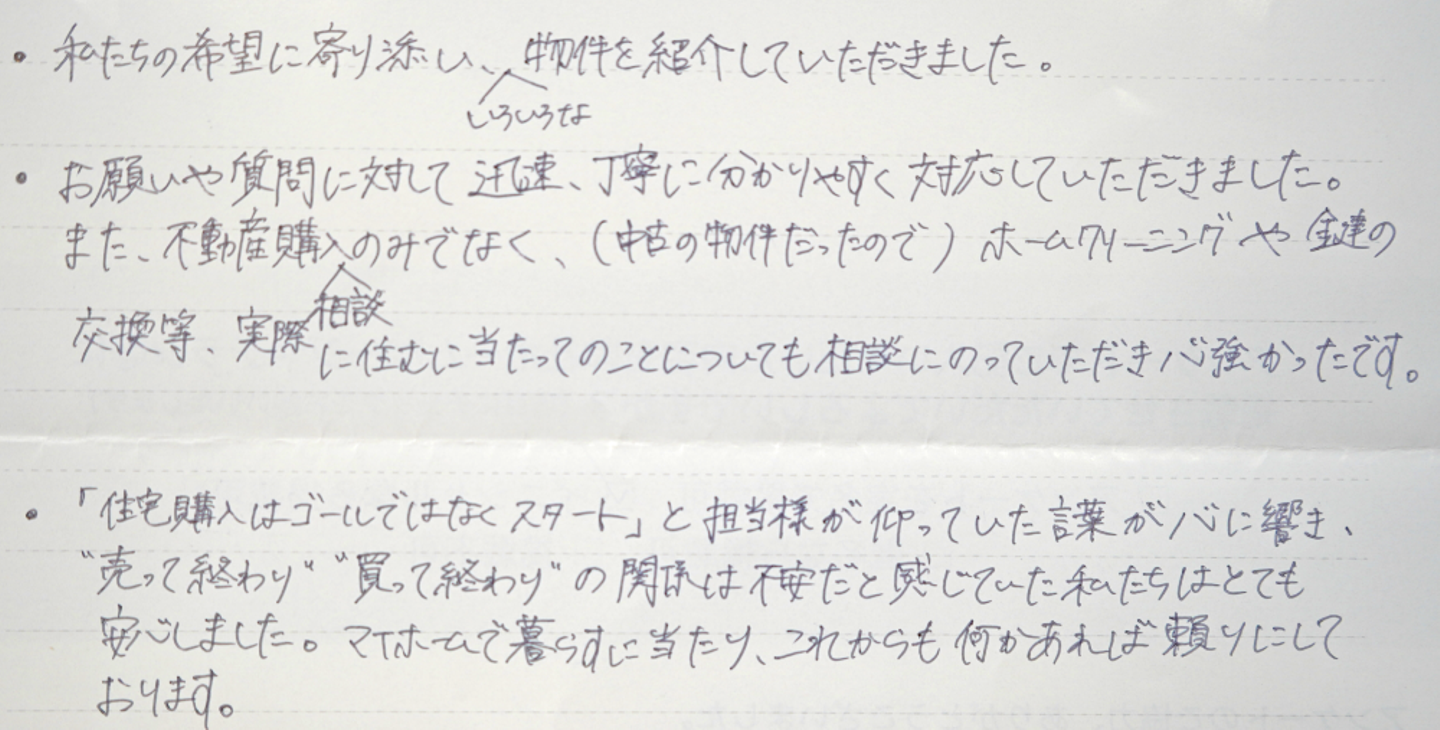 ・私たちの希望に寄り添い、物件を紹介していただきました。
いろいろな
・お願いや質問に対して迅速、丁寧に分かりやすく対応していただきました。
また、不動産購入のみでなく、(中古の物件だったので)ホームクリーニングや鍵の
相談
交換等、実際に住むに当たってのことについても相談にのっていただき心強かったです。
・「住宅購入はゴールではなくスタート」と担当様が仰っていた言葉が心に響き、
"売って終わり" "買って終わり"の関係は不安だと感じていた私たちはとても
安心しました。マイホームで暮らすに当たり、これからも何かあれば頼りにして
おります。